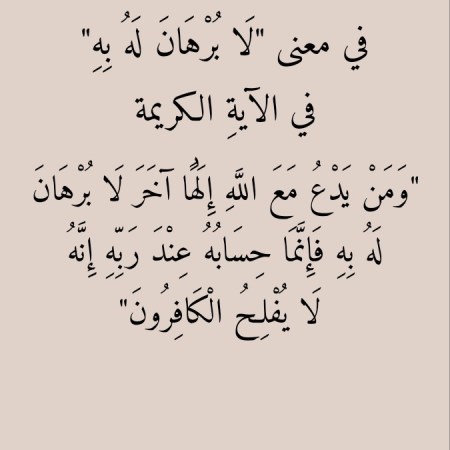 في معنى "لَا بُرْهَانَ لَهُ بِهِ"
في الآيةِ الكريمة
"وَمَنْ يَدْعُ مَعَ اللَّهِ إِلَهًا آخَرَ لَا بُرْهَانَ
لَهُ بِهِ فَإِنَّمَا حِسَابُهُ عِنْدَ رَبِّهِ إِنَّهُ
لَا يُفْلِحُ الْكَافِرُونَ"